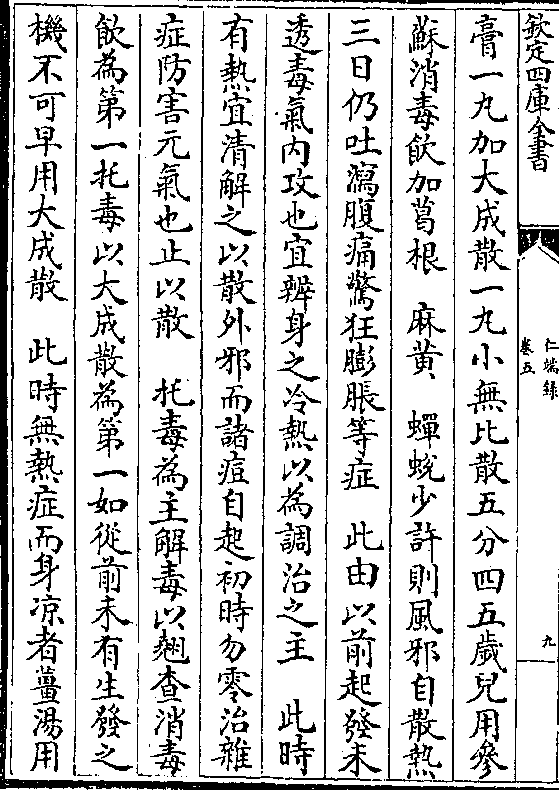 欽定四庫全書
仁端錄
卷五
九
膏一九加大成散一九小無比散五分四五歲兒用參
蘇消毒飲加葛根　麻黄　蟬蛻少許則風邪自散熱
三日仍吐瀉腹痛驚狂膨脹等症　此由以前起發未
透毒氣内攻也宜辨身之冷熱以為調治之主　此時
有熱宜清解之以散外邪而諸痘自起初時勿零治雜
症防害元氣也止以散　托毒為主解毒以翹查消毒
飲為第一托毒以大成散為第一如從前未有生發之
機不可早用大成散　此時無熱症而身凉者薑湯用